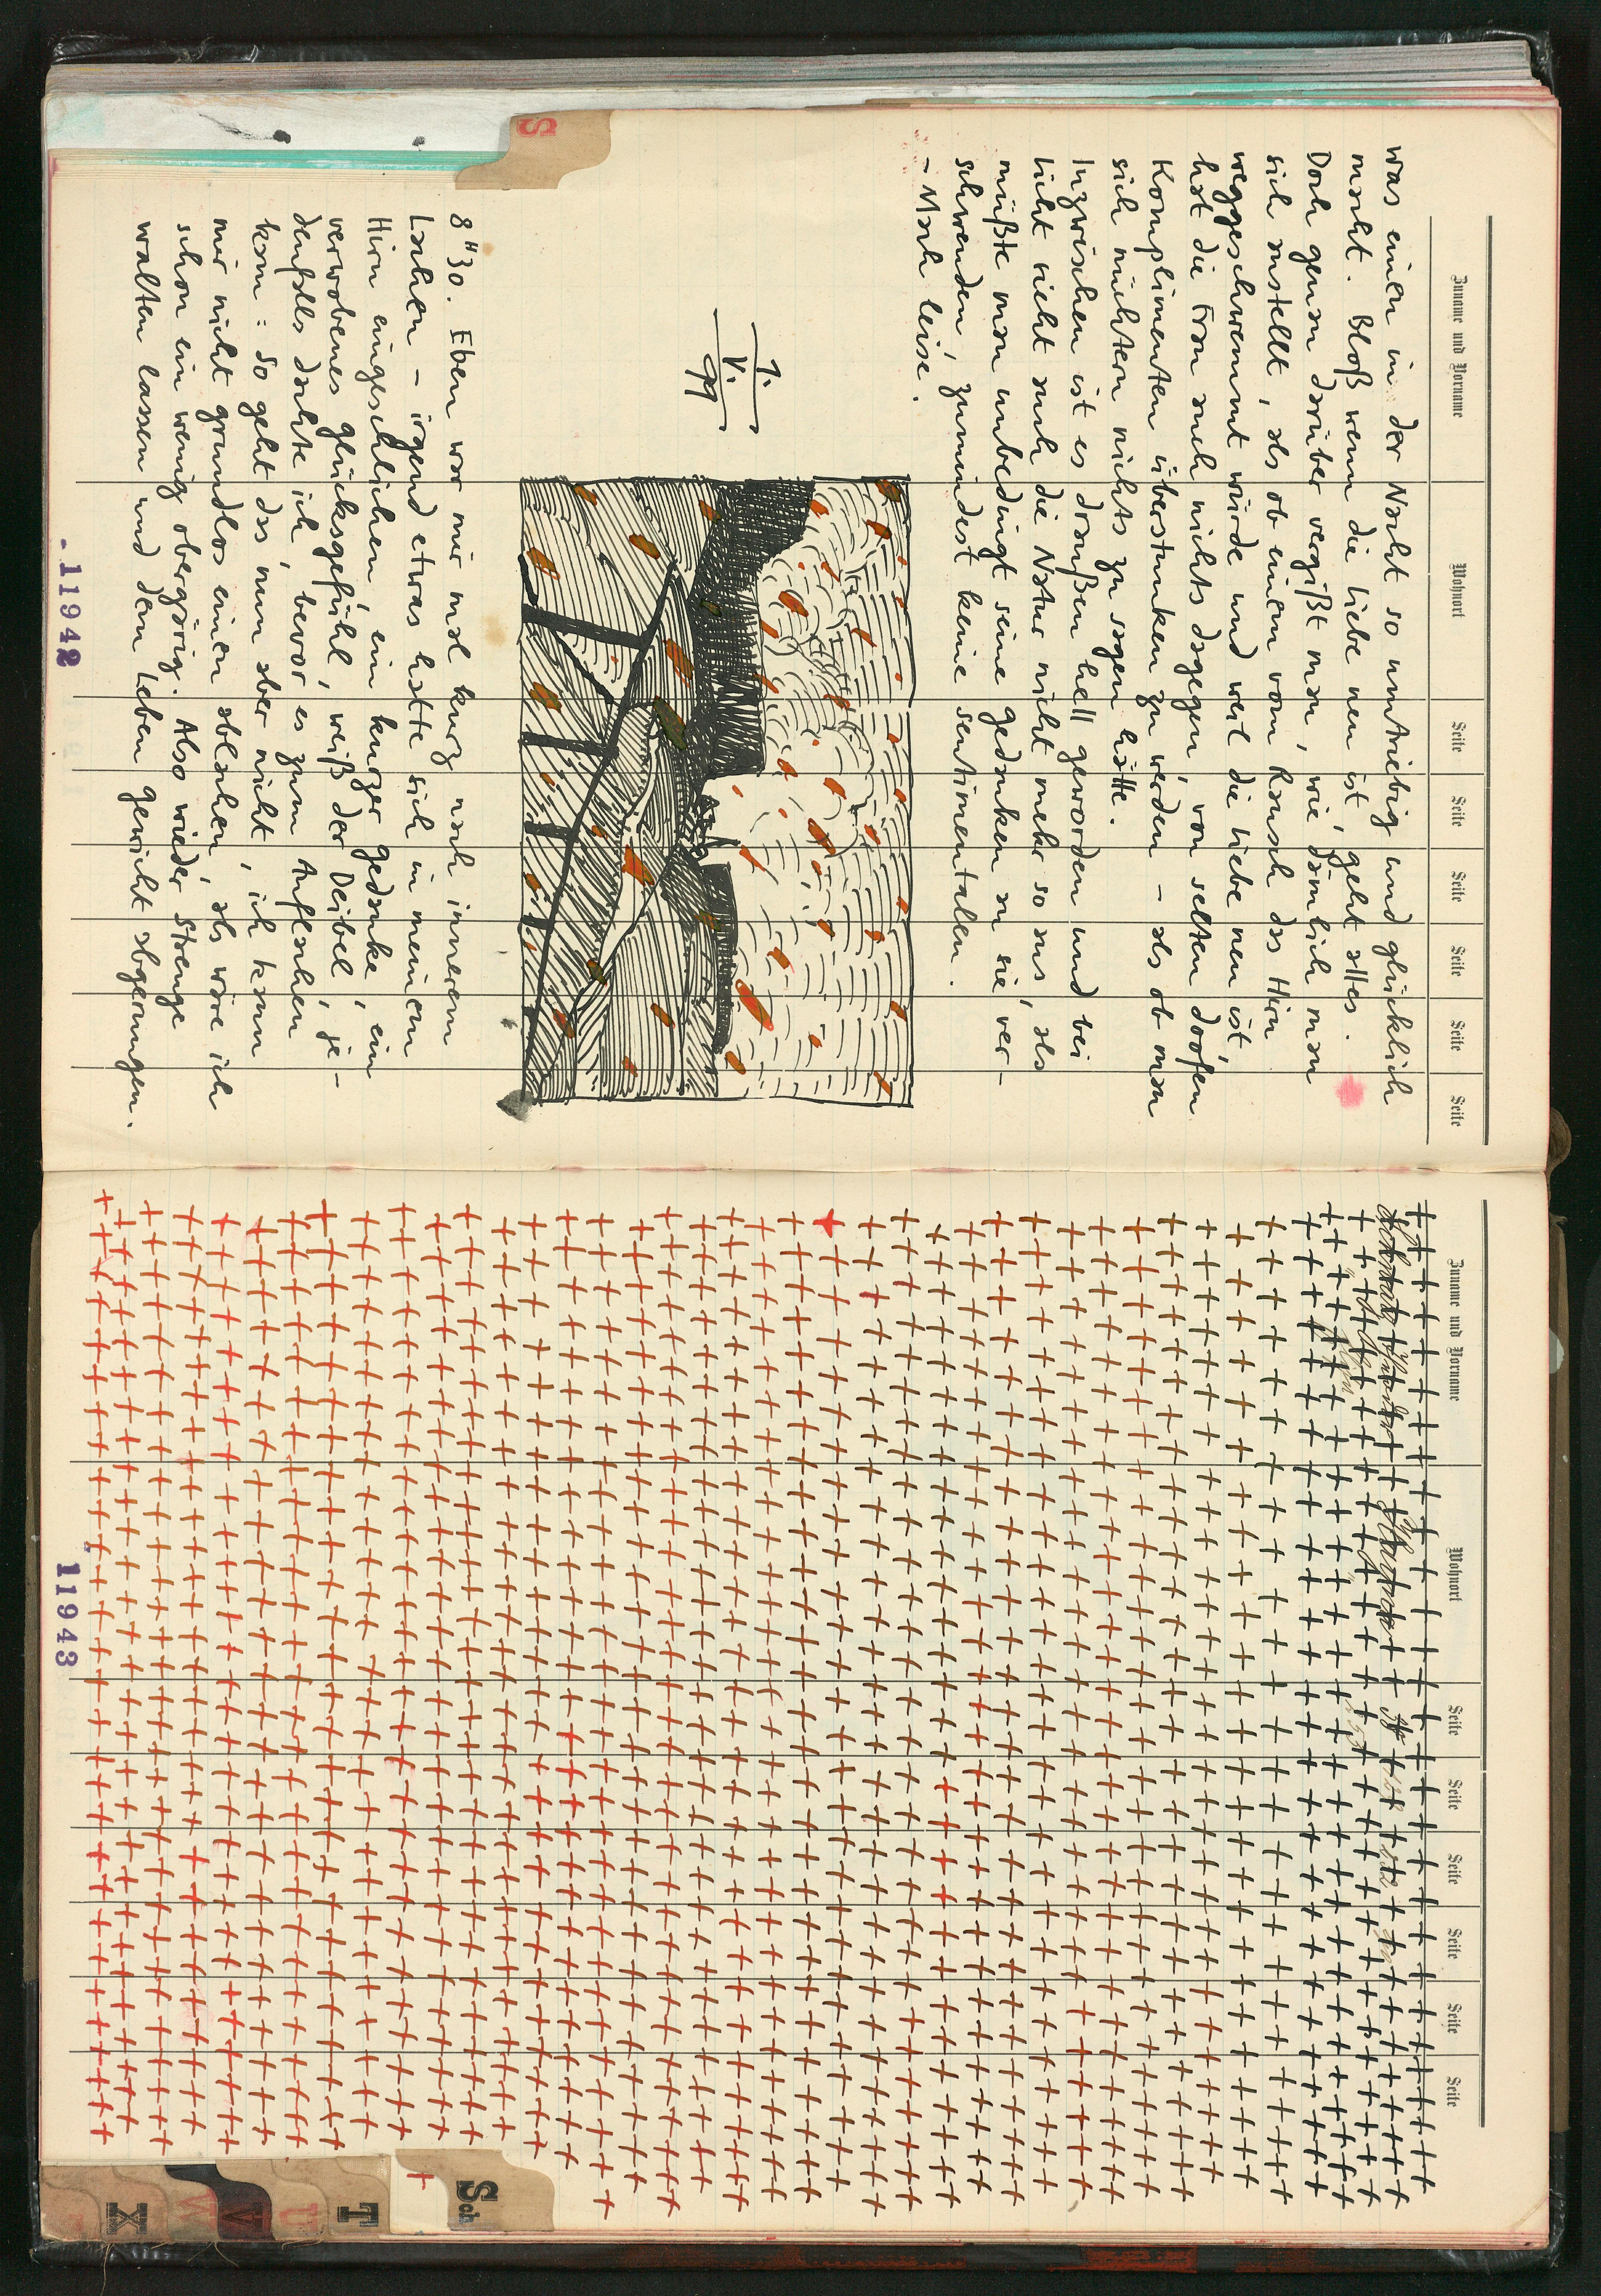 Zuname und Vorname Wohnort Seite Seite Seite Seite Seite Seite
was einen in der Nacht so umtriebig und glücklich
macht. Bloß wenn die Liebe neu ist, geht alles.
Doch genau darüber vergißt man, wie dämlich man
sich anstellt, als ob einem vom Rausch das Hirn
weggeschwemmt würde und weil die Liebe neu ist
hat die Frau auch nichts dagegen, von selten doofen
Komplimenten überstunken zu werden – als ob man
sich nüchtern nichts zu sagen hätte.
Inzwischen ist es draußen hell geworden und bei
Licht sieht auch die Natur nicht mehr so aus, als
müßte man unbedingt seine Gedanken an sie ver-
schwenden, zumindest keine sentimentalen.
- Mach leise.
1.
V.
99
8"30. Eben war mir mal kurz nach innerem
Lachen – irgend etwas hatte sich in meinem
Hirn eingeschlichen, ein kurzer Gedanke, ein
verwobenes Glücksgefühl, weiß der Deibel, je-
denfalls dachte ich, bevor es zum Auflachen
kam: So geht das nun aber nicht, ich kann
mir nicht grundlos einen ablachen, als wäre ich
schon ein wenig obergärig. Also wieder Strenge
walten lassen und dem Leben Gewicht abgerungen.
11942
S
Zuname und Vorname Wohnort Seite Seite Seite Seite Seite Seite
11943
Sch
T
U
V
W
X